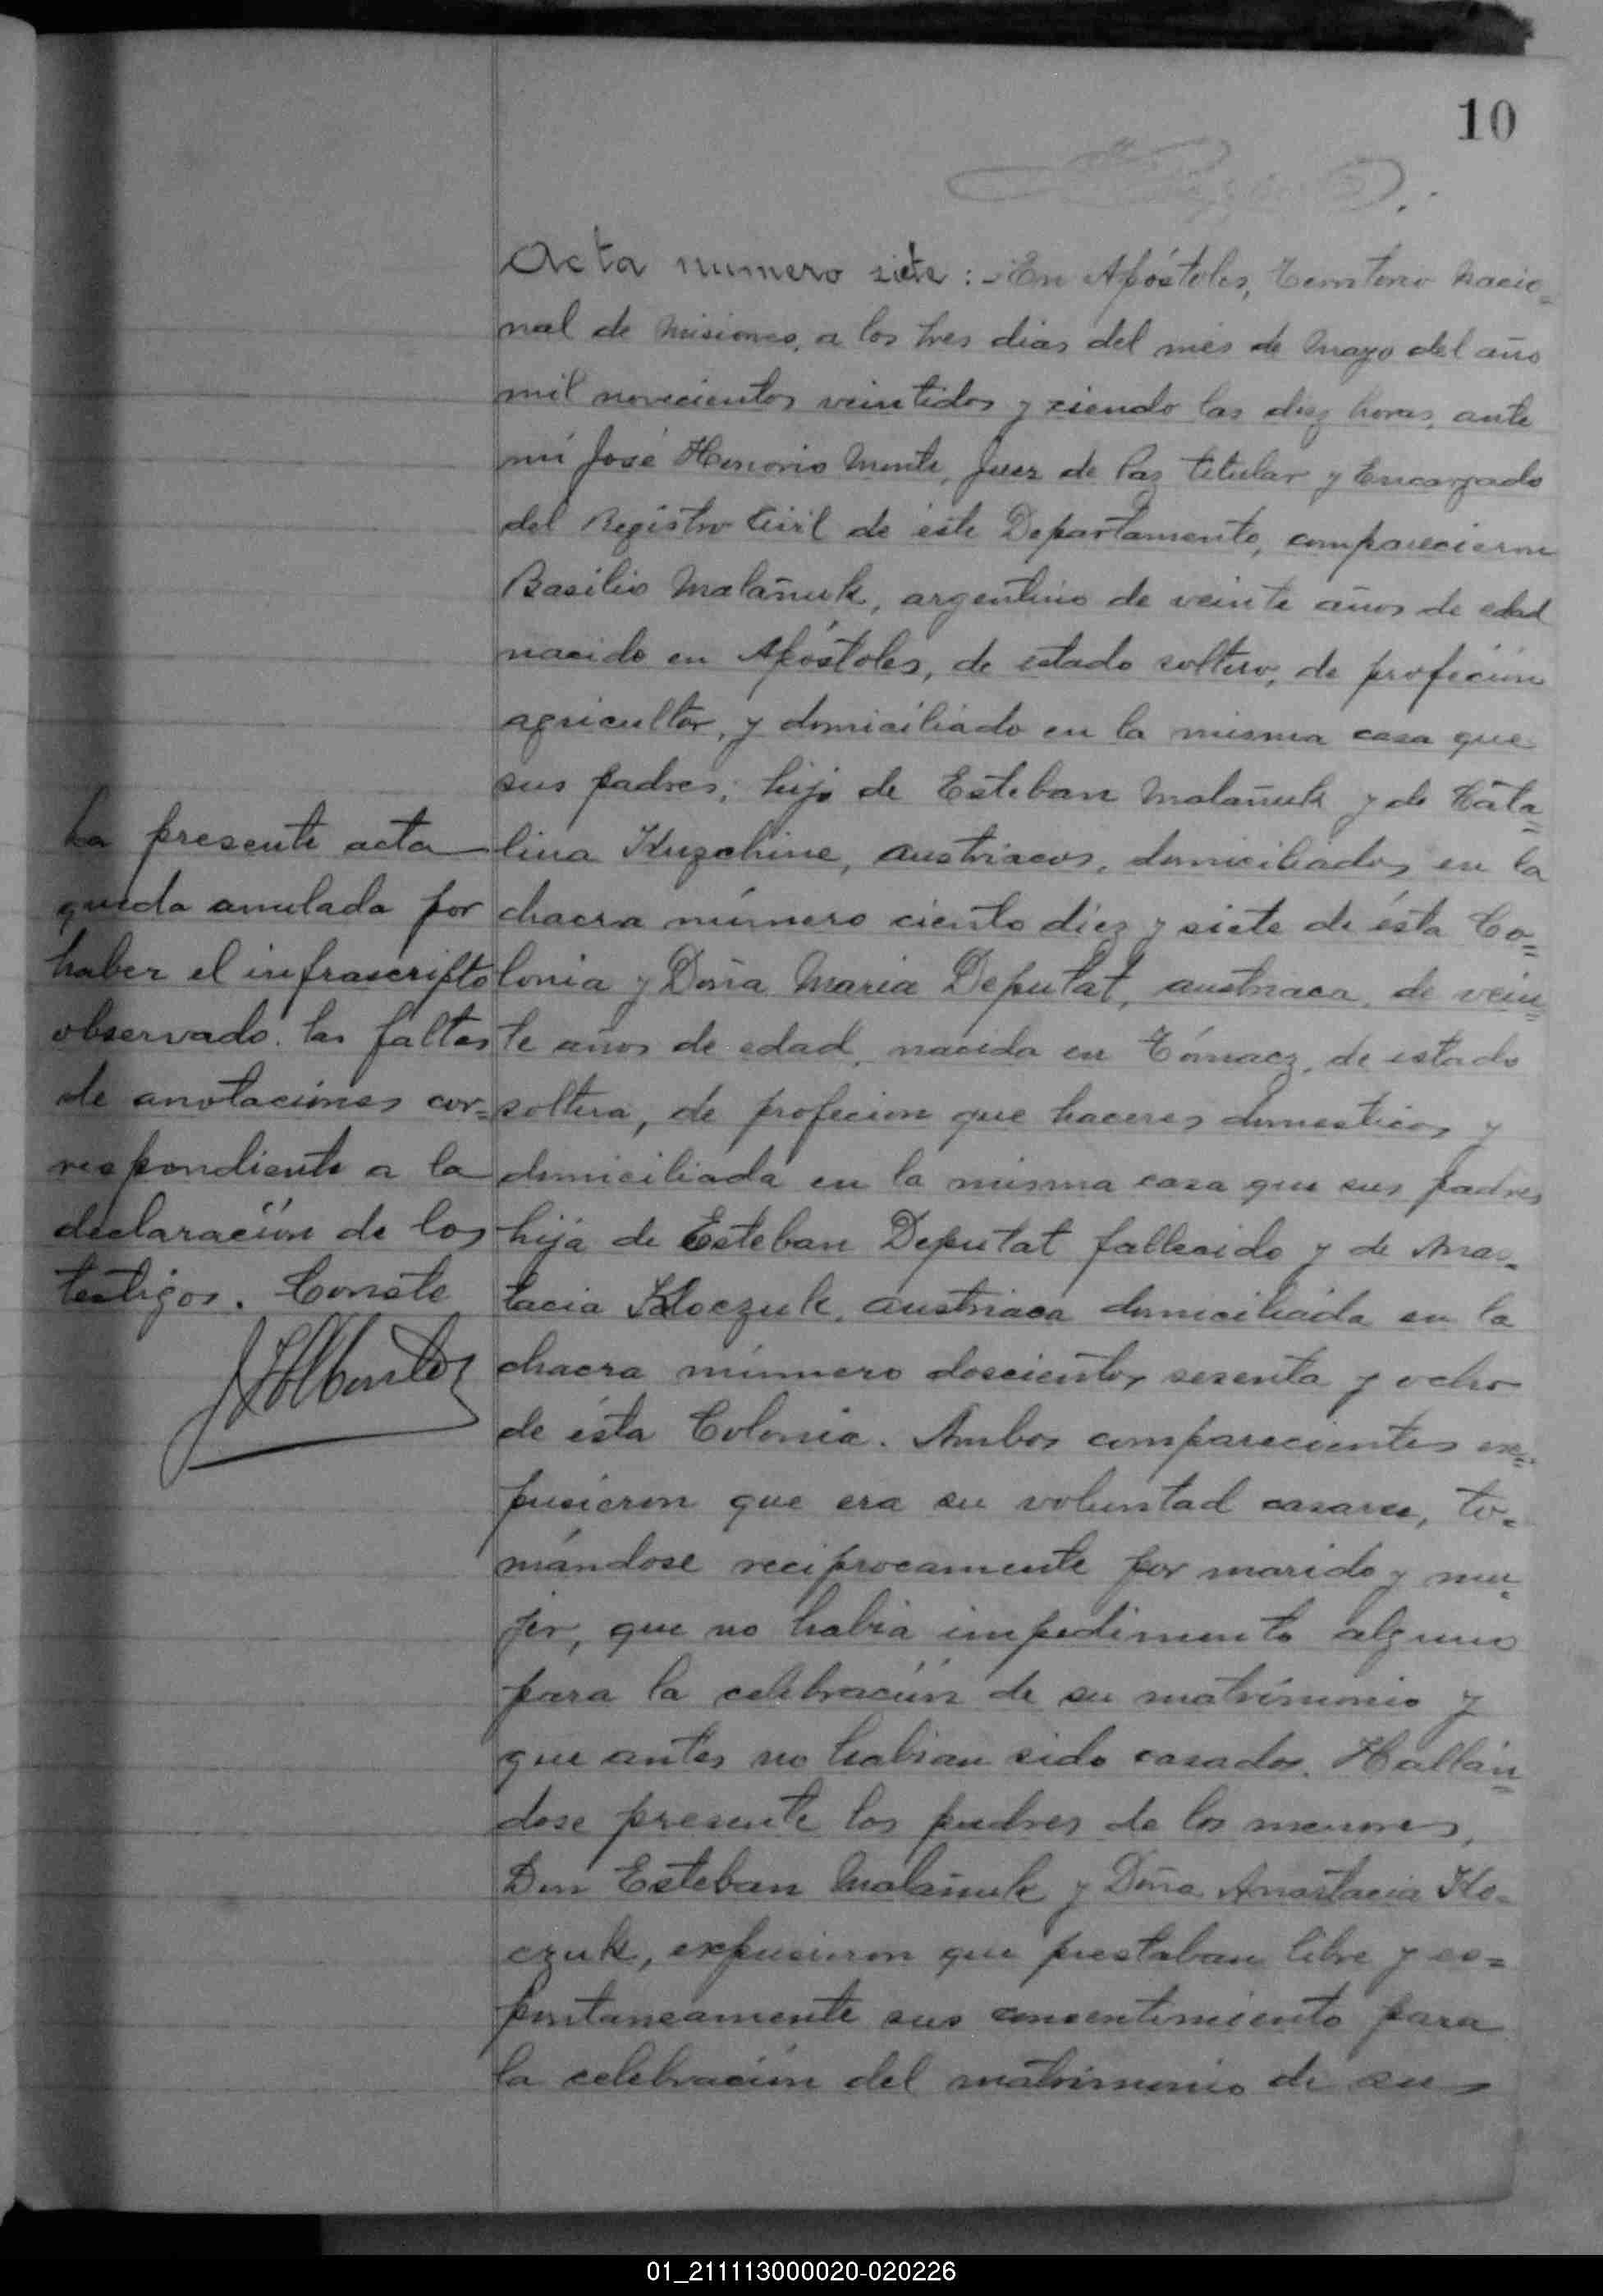 10
Acta numero siete :- En Apóstoles, Territorio Nacio=
nal de Misiones, a los tres dias del mes de Mayo del año
mil novecientos veintidos y siendo las diez horas, ante
mi José Honorio Monte, Juez de Paz titular y Encargado
del Registro Civil de éste Departamento, comparecieron
Basilio Malañuk, argentino de veinte años de edad
nacido en Apóstoles, de estado soltero, de profeción
agricultor, y domiciliado en la misma casa que
sus padres; hijo de Esteban Malañuk y de Cata=
lina Kuzchine, austriacos, domiciliados en la
chacra número ciento diez y siete de ésta Co=
lonia y Doña Maria Deputat, austriaca, de vein=
te años de edad, nacida en Tómacz, de estado
soltera, de profecion que haceres domesticos y
domiciliada en la misma casa que sus padres
hija de Esteban Deputat fallecido y de Anas=
tacia Kloczuk, austriaca domiciliada en la
chacra número doscientos sesenta y ocho
de ésta Colonia. Ambos comparecientes ex=
pusieron que era su voluntad casarse, to=
mándose reciprocamente por marido y mu=
jer, que no habia impedimento alguno
para la celebración de su matrimonio y
que antes no habian sido casados. Hallán=
dose presente los padres de los menores,
Don Esteban Malañuk y Doña Anastacia Klo=
czuk, expusieron que prestaban libre y es=
pontaneamente sus consentimiento para
la celebración del matrimonio de sus
La presente acta
queda anulada por
haber el infrascripto
observado las faltas
de anotaciones cor=
respondiente a la
declaración de los
testigos. Conste
01_211113000020-020226